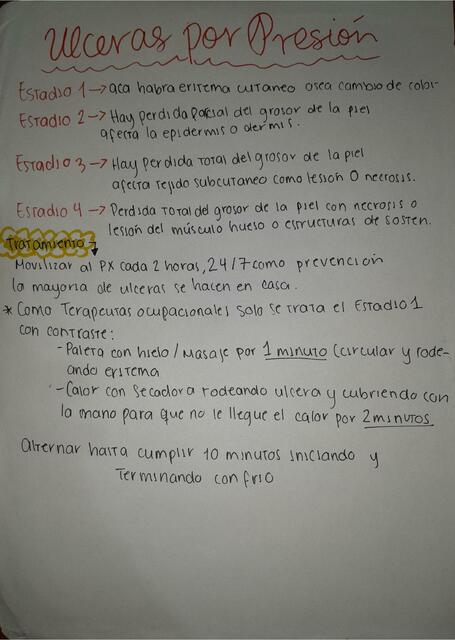 Ulceras por Presión
Estadio 1 → aca habra eritema cutaneo osea cambio de color
Estadio 2 → Hay perdida parcial del grosor de la piel
afecta la epidermis o dermis.
Estadio 3 → Hay perdida total del grosor de la piel
afecta tejido subcutaneo como lesión o necrosis.
Estadio 4 → Perdida total del grosor de la piel con necrosis o
lesión del músculo hueso o estructuras de sosten.
Tratamiento
Movilizar al PX cada 2 horas, 24/7 como prevención
la mayoria de ulceras se hacen en casa.
* Como Terapeutas ocupacionales solo se trata el Estadio 1
con contraste:
- Paleta con hielo / Masaje por 1 minuto (circular y rode-
ando eritema
- Calor con secadora rodeando ulcera y cubriendo con
la mano para que no le llegue el calor por 2 minutos.
Alternar hasta cumplir 10 minutos iniciando y
Terminando con frio